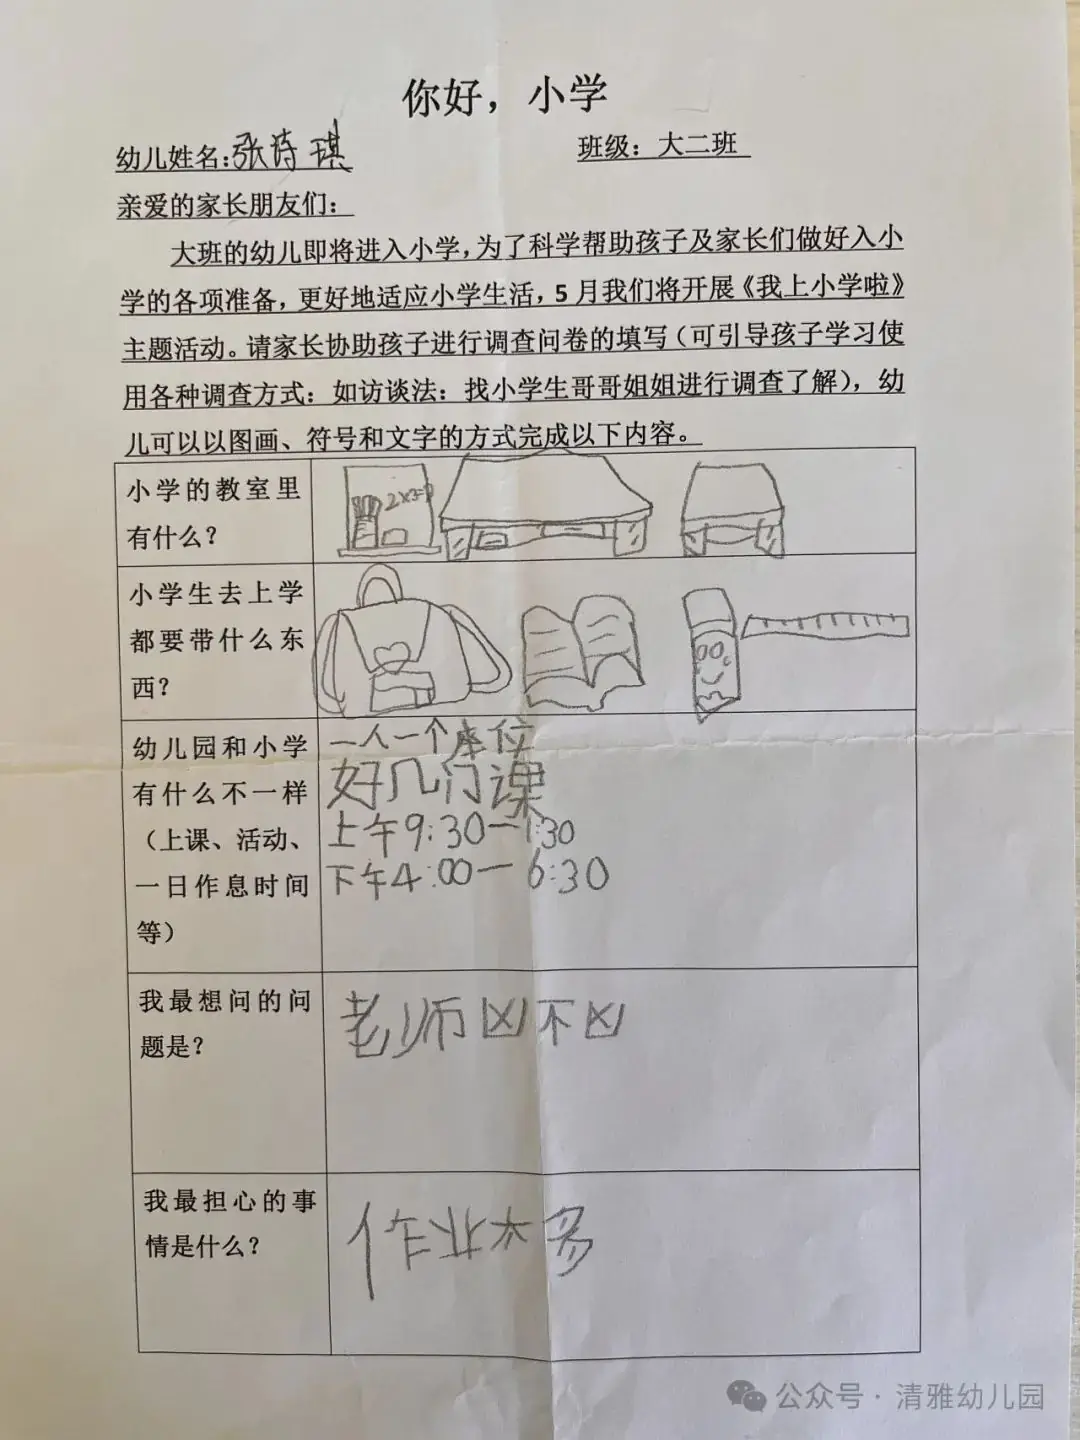 你好，小学
幼儿姓名：张诗琪 班级：大二班
亲爱的家长朋友们：
大班的幼儿即将进入小学，为了科学帮助孩子及家长们做好入小
学的各项准备，更好地适应小学生活，5月我们将开展《我上小学啦》
主题活动。请家长协助孩子进行调查问卷的填写（可引导孩子学习使
用各种调查方式：如访谈法：找小学生哥哥姐姐进行调查了解），幼
儿可以以图画、符号和文字的方式完成以下内容。
小学的教室里
有什么？
小学生去上学
都要带什么东
西？
幼儿园和小学
有什么不一样
（上课、活动、
一日作息时间
等）
一人一个座位
好几门课
上午9:30一1:30
下午4:00一6:30
我最想问的问
题是？
老师凶不凶
我最担心的事
情是什么？
作业太多
公众号·清雅幼儿园